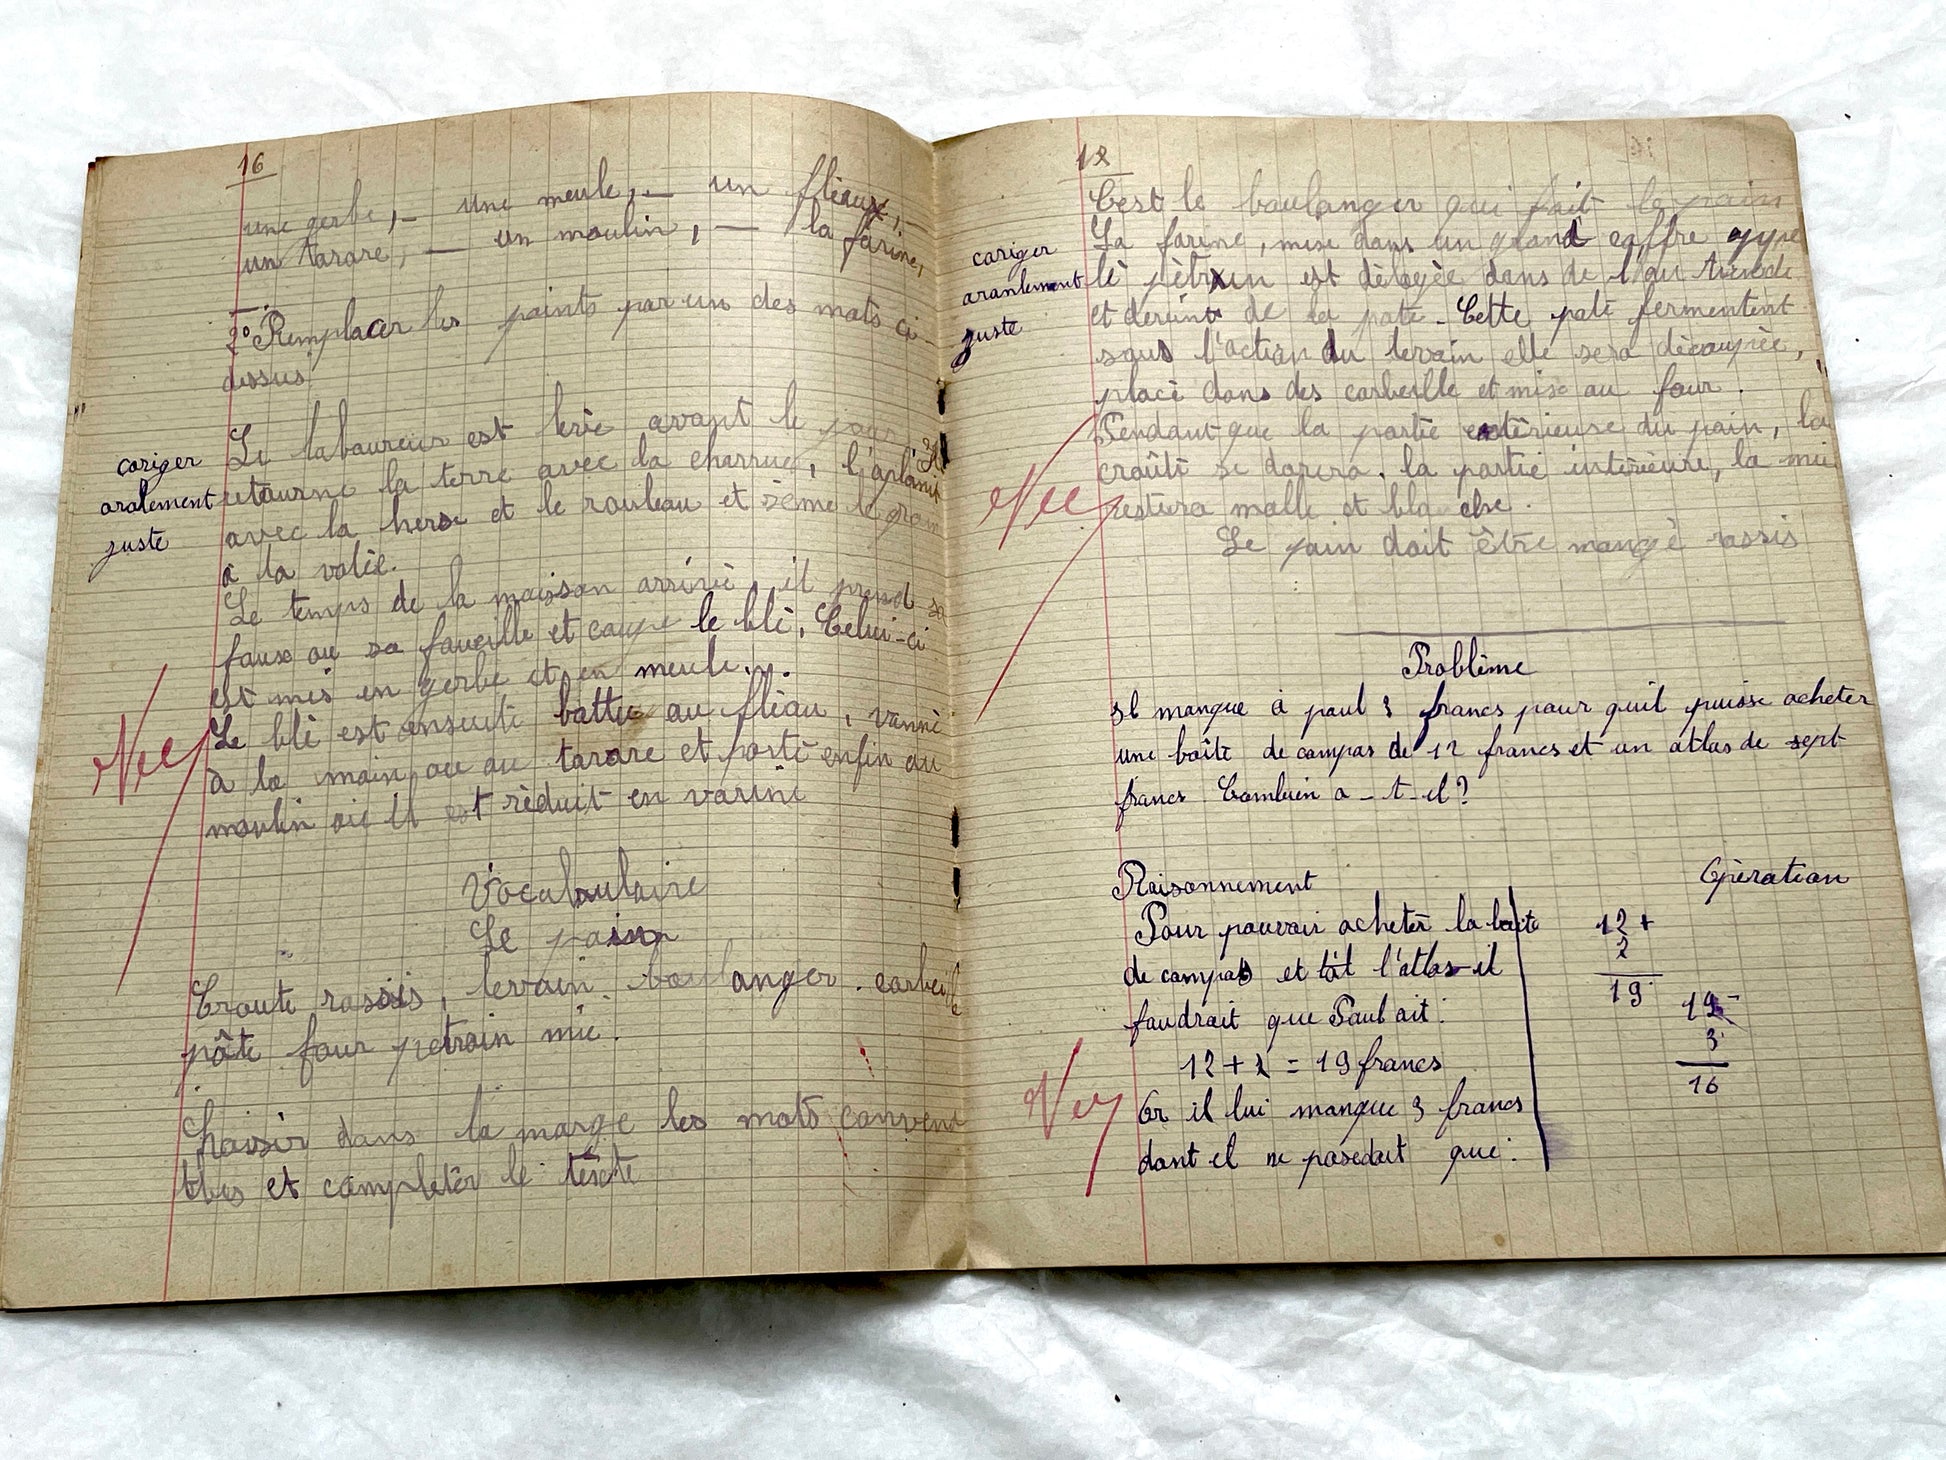 16
une gerbe, — une meule, — un fléaux, —
un tarare, — un moulin, — la farine,
—.
2° Remplacer les points par un des mots ci-
dessus
Le laboureur est levé avant le jour Il
cariger retourne la terre avec la charrue, l'aplanit
oralement avec la herse et le rouleau et sème le grain
juste à la volée.
Le temps de la maisson arrivé il prend sa
faux ou sa faucille et coupe le blé. Celui-ci
est mis en gerbe et en meule...
Le blé est ensuite battu au fléau, vanné
Vu
à la main ou au tarare et porté enfin au
moulin où il est réduit en varine
Vocabulaire
Le pain
Croute rassis, levain boulanger. corbeille
pâte four petrain mie.
Choisir dans la marge les mots convena
bles et complétér le texte
12
C'est le boulanger qui fait le pain
La farine, mise dans un grand coffre appe
cariger
lé pètrin est délayée dans de l'eau
oralement
et devint de la pate. Cette pate fermentent
juste
sous l'action du levain elle sera découpée,
placé dans des corbeille et mise au four.
Pendant que la partie extérieuse du pain, la
croûte se dorera. la partie intérieure, la mie
Vu
restera molle et bla che.
Le pain doit être mangé rassis
Problème
Il manque à paul 3 francs pour quil puisse acheter
une boîte de compas de 12 francs et un atlas de sept
francs Combien a-t-il?
Raisonnement
Opèration
Pour pouvoir acheter la boîte
12 +
de compas et l'atlas il
19
faudrait que Paul ait:
3
12 + = 19 francs
16
Vu
Or il lui manque 3 francs
dont il ne posedait que: